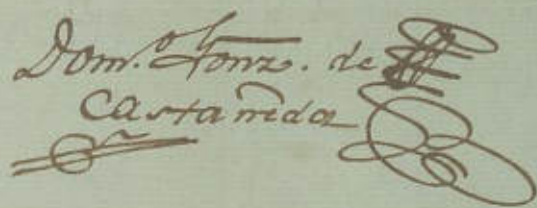 Dom.º Gonz. de
Castañeda